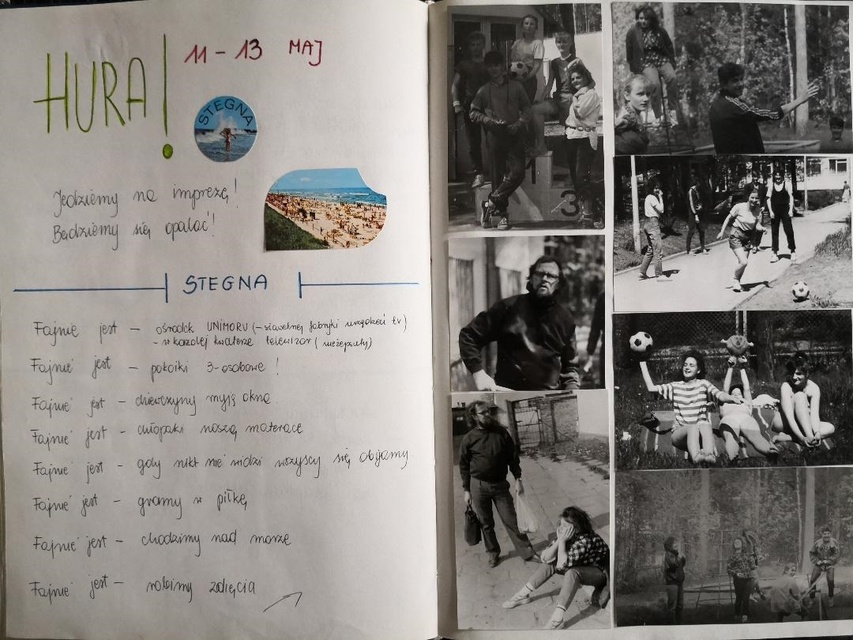 HURA!
11-13 MAJ
STEGNA
Jedziemy na imprezę!
Będziemy się opalać!
STEGNA
Fajnie jest - ośrodek UNIMORU (- sławetnej fabryki urządzeń tv)
- w każdej kwaterze telewizor (nieżepsuty)
Fajnie jest - pokoiki 3-osobowe!
Fajnie jest - dziewczyny myją okna
Fajnie jest - chłopaki noszą materace
Fajnie jest - gdy nikt nie widzi wszyscy się obijamy
Fajnie jest - gramy w piłkę
Fajnie jest - chodzimy nad morze
Fajnie jest - robimy zdjęcia
3